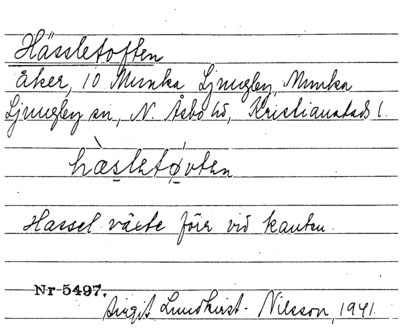 Hässletoften
åker, 10 Munka Ljungby, Munka
Ljungby sn, N. Åsbo hd, Kristianstads l.
hàsletǿvten
Hassel växte förr vid kanten.
Nr 5497.
Birgit Lundkvist-Nilsson, 1941.